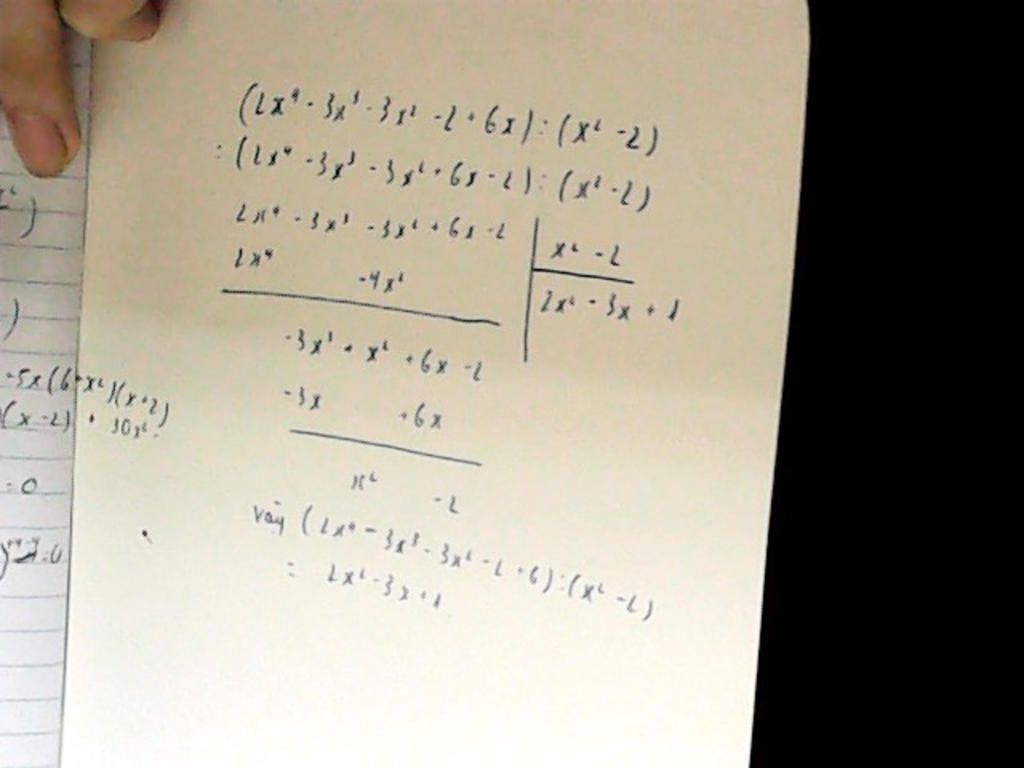 (2x⁴ - 3x³ - 3x² - 2 + 6x) : (x² - 2)
: (2x⁴ - 3x³ - 3x² + 6x - 2) : (x² - 2)
2x⁴ - 3x³ - 3x² + 6x - 2
x² - 2
2x⁴ - 4x²
2x² - 3x + 1
-3x³ + x² + 6x - 2
-3x + 6x
x² - 2
Vậy (2x⁴ - 3x³ - 3x² - 2 + 6) : (x² - 2)
= 2x² - 3x + 1
)
-5x(6+x²)(x+2)
(x-2) + 30x².
= 0